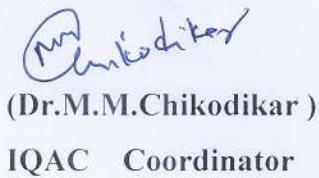 Chikodikar
(Dr.M.M.Chikodikar )
IQAC Coordinator